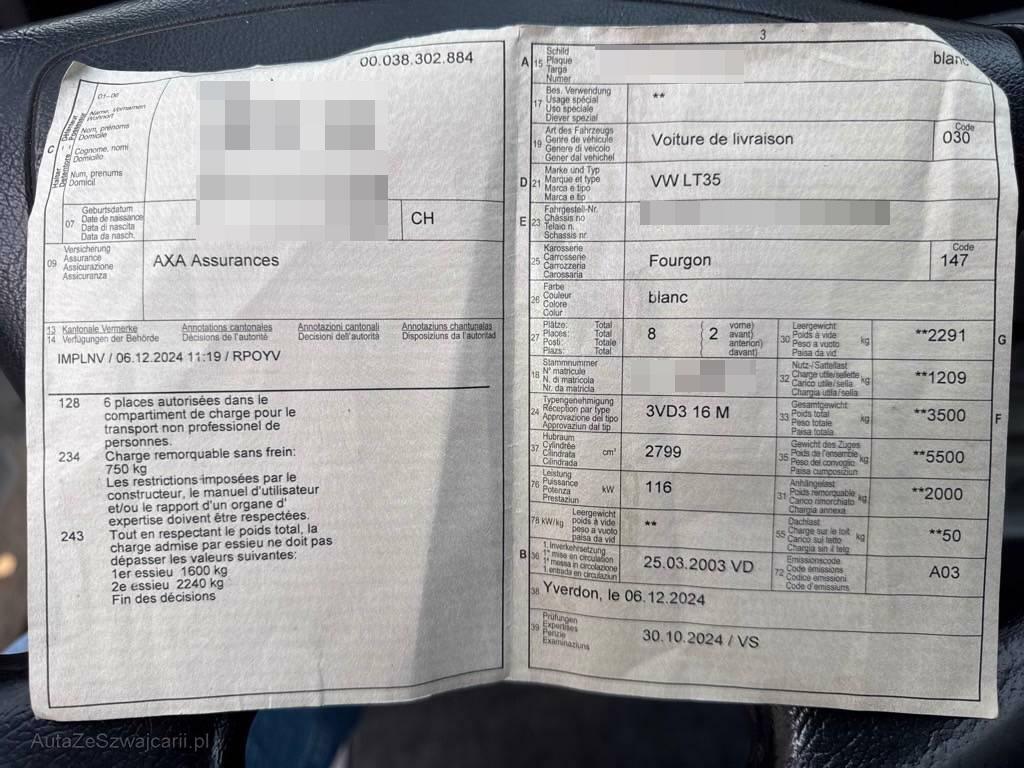 00.038.302.884
01-06
Name, Vornamen
Wohnort
Nom, prénoms
Domicile
Cognome, nomi
Domicilio
Num, prenums
Domicil
C
Halter
Détenteur
07
Geburtsdatum
Date de naissance
Data di nascita
Data da nasch.
CH
09
Versicherung
Assurance
Assicurazione
Assicuranza
AXA Assurances
13 Kantonale Vermerke Annotations cantonales Annotazioni cantonali Annotaziuns chantunalas
14 Verfügungen der Behörde Décisions de l'autorité Decisioni dell'autorità Disposiziuns da l'autoritad
IMPLNV / 06.12.2024 11:19 / RPOYV
128 6 places autorisées dans le
compartiment de charge pour le
transport non professionel de
personnes.
234 Charge remorquable sans frein:
750 kg
Les restrictions imposées par le
constructeur, le manuel d'utilisateur
et/ou le rapport d'un organe d'
expertise doivent être respectées.
243 Tout en respectant le poids total, la
charge admise par essieu ne doit pas
dépasser les valeurs suivantes:
1er essieu 1600 kg
2e essieu 2240 kg
Fin des décisions
3
A 15
Schild
Plaque
Targa
Numer
blanc
17
Bes. Verwendung
Usage spécial
Uso speciale
Diever spezial
**
19
Art des Fahrzeugs
Genre de véhicule
Genere di veicolo
Gener dal vehichel
Voiture de livraison
Code
030
D 21
Marke und Typ
Marque et type
Marca e tipo
Marca e tip
VW LT35
E 23
Fahrgestell-Nr.
Châssis no
Telaio n.
Schassis nr.
25
Karosserie
Carrosserie
Carrozzeria
Carossaria
Fourgon
Code
147
26
Farbe
Couleur
Colore
Colur
blanc
27
Plätze: Total
Places: Total
Posti: Totale
Plazs: Totale
8
2
vorne)
avant)
anteriori)
davant)
30
Leergewicht
Poids à vide
Peso a vuoto
Paisa da vid
kg
**2291
G
18
Stammnummer
N° matricule
N. di matricola
Nr. da matricla
32
Nutz-/Sattellast
Charge utile/sellette
Carico utile/sella
Chargia utila/sella
kg
**1209
24
Typengenehmigung
Réception par type
Approvazione del tipo
Approvaziun dal tip
3VD3 16 M
33
Gesamtgewicht
Poids total
Peso totale
Paisa totala
kg
**3500
F
37
Hubraum
Cylindrée
Cilindrata
Cilindrada
cm³
2799
35
Gewicht des Zuges
Poids de l'ensemble
Peso del convoglio
Paisa cumposiziun
kg
**5500
76
Leistung
Puissance
Potenza
Prestaziun
kW
116
31
Anhängelast
Poids remorquable
Carico rimorchiato
Chargia annexa
kg
**2000
78 kW/kg
Leergewicht
poids à vide
peso a vuoto
paisa da vid
**
55
Dachlast
Charge sur le toit
Carico sul tetto
Chargia sin il tetg
kg
**50
B 36
1. Inverkehrsetzung
1re mise en circulation
1a messa in circolazione
1. entrada en circulaziun
25.03.2003 VD
72
Emissionscode
Code émissions
Codice emissioni
Code d'emissiuns
A03
38
Yverdon, le 06.12.2024
39
Prüfungen
Expertises
Perizie
Examinaziuns
30.10.2024 / VS
AutaZeSzwajcarii.pl